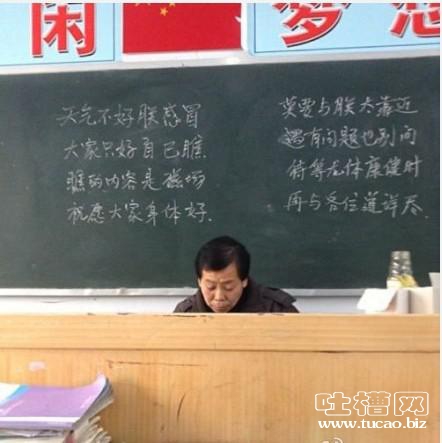 梦想
天气不好朕感冒
大家只好自己瞧
瞧的内容是磁场
祝愿大家身体好.
莫要与朕太靠近
遇有问题也别问
待等龙体康健时
再与各位道详尽.
吐槽网
www.tucao.biz